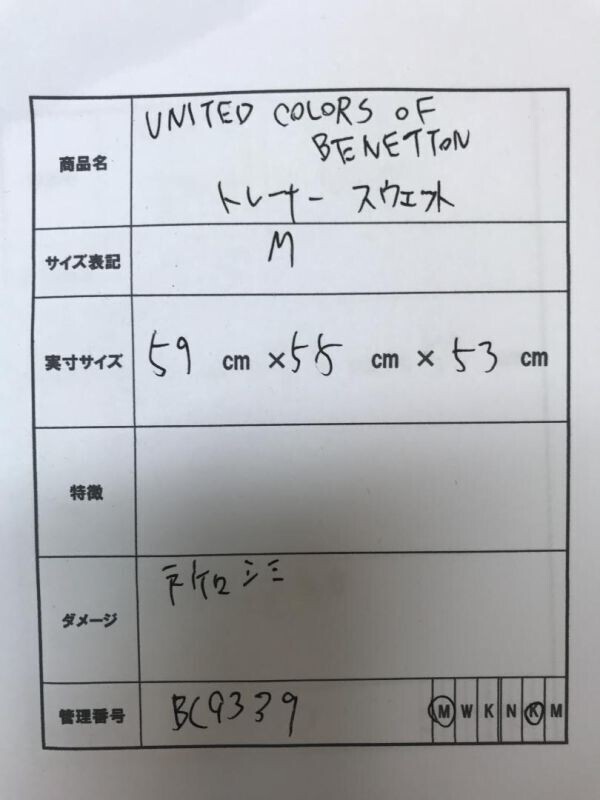 商品名
UNITED COLORS OF
BENETTON
トレーナー スウェット
サイズ表記
M
実寸サイズ
59 cm ×58 cm × 53 cm
特徴
ダメージ
シミ
管理番号
BC9339
M W K N K M